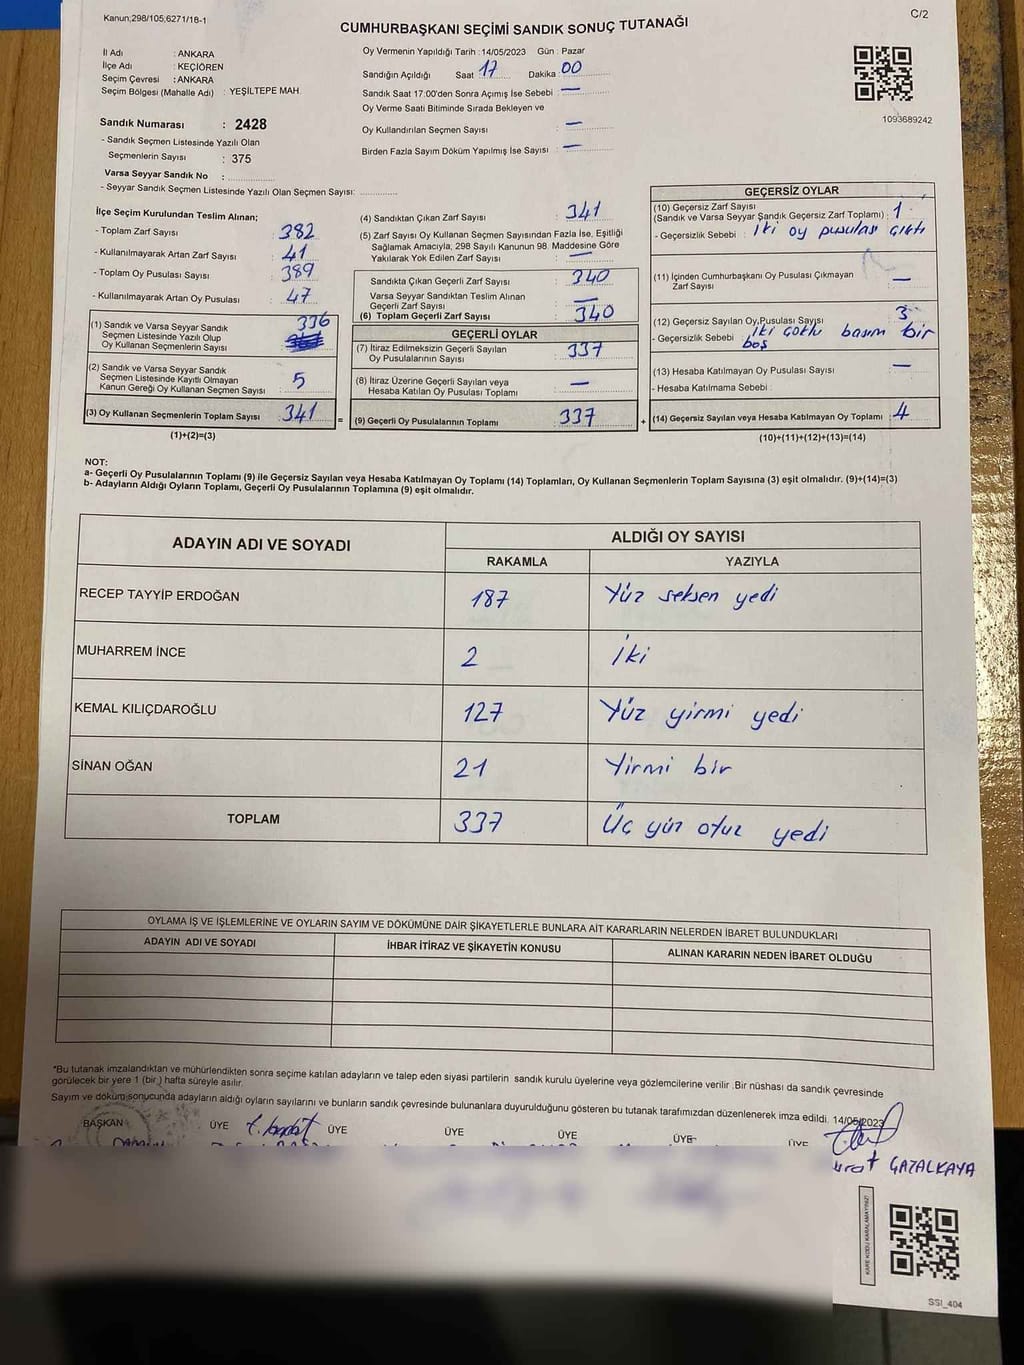 Kanun;298/105;6271/18-1
C/2
CUMHURBAŞKANI SEÇİMİ SANDIK SONUÇ TUTANAĞI
İl Adı : ANKARA
İlçe Adı : KEÇİÖREN
Seçim Çevresi : ANKARA
Seçim Bölgesi (Mahalle Adı) : YEŞİLTEPE MAH.
Sandık Numarası : 2428
- Sandık Seçmen Listesinde Yazılı Olan
Seçmenlerin Sayısı : 375
Varsa Seyyar Sandık No :
- Seyyar Sandık Seçmen Listesinde Yazılı Olan Seçmen Sayısı:
Oy Vermenin Yapıldığı Tarih : 14/05/2023 Gün : Pazar
Sandığın Açıldığı Saat 17 Dakika 00
Sandık Saat 17:00'den Sonra Açımış İse Sebebi : —
Oy Verme Saati Bitiminde Sırada Bekleyen ve
Oy Kullandırılan Seçmen Sayısı : —
Birden Fazla Sayım Döküm Yapılmış İse Sayısı : —
1093689242
İlçe Seçim Kurulundan Teslim Alınan;
- Toplam Zarf Sayısı : 382
- Kullanılmayarak Artan Zarf Sayısı : 41
- Toplam Oy Pusulası Sayısı : 389
- Kullanılmayarak Artan Oy Pusulası : 47
(1) Sandık ve Varsa Seyyar Sandık
Seçmen Listesinde Yazılı Olup
Oy Kullanan Seçmenlerin Sayısı : 336
(2) Sandık ve Varsa Seyyar Sandık
Seçmen Listesinde Kayıtlı Olmayan
Kanun Gereği Oy Kullanan Seçmen Sayısı : 5
(3) Oy Kullanan Seçmenlerin Toplam Sayısı : 341
(1)+(2)=(3)
(4) Sandıktan Çıkan Zarf Sayısı : 341
(5) Zarf Sayısı Oy Kullanan Seçmen Sayısından Fazla İse, Eşitliği
Sağlamak Amacıyla, 298 Sayılı Kanunun 98. Maddesine Göre
Yakılarak Yok Edilen Zarf Sayısı : —
Sandıkta Çıkan Geçerli Zarf Sayısı : 340
Varsa Seyyar Sandıktan Teslim Alınan
Geçerli Zarf Sayısı : —
(6) Toplam Geçerli Zarf Sayısı : 340
GEÇERLİ OYLAR
(7) İtiraz Edilmeksizin Geçerli Sayılan
Oy Pusulalarının Sayısı : 337
(8) İtiraz Üzerine Geçerli Sayılan veya
Hesaba Katılan Oy Pusulası Toplamı : —
= (9) Geçerli Oy Pusulalarının Toplamı : 337 +
GEÇERSİZ OYLAR
(10) Geçersiz Zarf Sayısı
(Sandık ve Varsa Seyyar Sandık Geçersiz Zarf Toplamı) : 1
- Geçersizlik Sebebi : İki oy pusulası çıktı
(11) İçinden Cumhurbaşkanı Oy Pusulası Çıkmayan
Zarf Sayısı : —
(12) Geçersiz Sayılan Oy Pusulası Sayısı : 3
- Geçersizlik Sebebi : İki çoklu basım bir
boş
(13) Hesaba Katılmayan Oy Pusulası Sayısı : —
- Hesaba Katılmama Sebebi :
(14) Geçersiz Sayılan veya Hesaba Katılmayan Oy Toplamı : 4
(10)+(11)+(12)+(13)=(14)
NOT:
a- Geçerli Oy Pusulalarının Toplamı (9) ile Geçersiz Sayılan veya Hesaba Katılmayan Oy Toplamı (14) Toplamları, Oy Kullanan Seçmenlerin Toplam Sayısına (3) eşit olmalıdır. (9)+(14)=(3)
b- Adayların Aldığı Oyların Toplamı, Geçerli Oy Pusulalarının Toplamına (9) eşit olmalıdır.
ADAYIN ADI VE SOYADI ALDIĞI OY SAYISI
RAKAMLA YAZIYLA
RECEP TAYYİP ERDOĞAN 187 Yüz seksen yedi
MUHARREM İNCE 2 İki
KEMAL KILIÇDAROĞLU 127 Yüz yirmi yedi
SİNAN OĞAN 21 Yirmi bir
TOPLAM 337 Üç yüz otuz yedi
OYLAMA İŞ VE İŞLEMLERİNE VE OYLARIN SAYIM VE DÖKÜMÜNE DAİR ŞİKAYETLERLE BUNLARA AİT KARARLARIN NELERDEN İBARET BULUNDUKLARI
ADAYIN ADI VE SOYADI İHBAR İTİRAZ VE ŞİKAYETİN KONUSU ALINAN KARARIN NEDEN İBARET OLDUĞU
*Bu tutanak imzalandıktan ve mühürlendikten sonra seçime katılan adayların ve talep eden siyasi partilerin sandık kurulu üyelerine veya gözlemcilerine verilir .Bir nüshası da sandık çevresinde
görülecek bir yere 1 (bir ) hafta süreyle asılır.
Sayım ve döküm sonucunda adayların aldığı oyların sayılarını ve bunların sandık çevresinde bulunanlara duyurulduğunu gösteren bu tutanak tarafımızdan düzenlenerek imza edildi. 14/05/2023
BAŞKAN ÜYE ÜYE ÜYE ÜYE ÜYE ÜYE
GAZALKAYA
KARE KODU KARALAMAYINIZ!
SSI_404